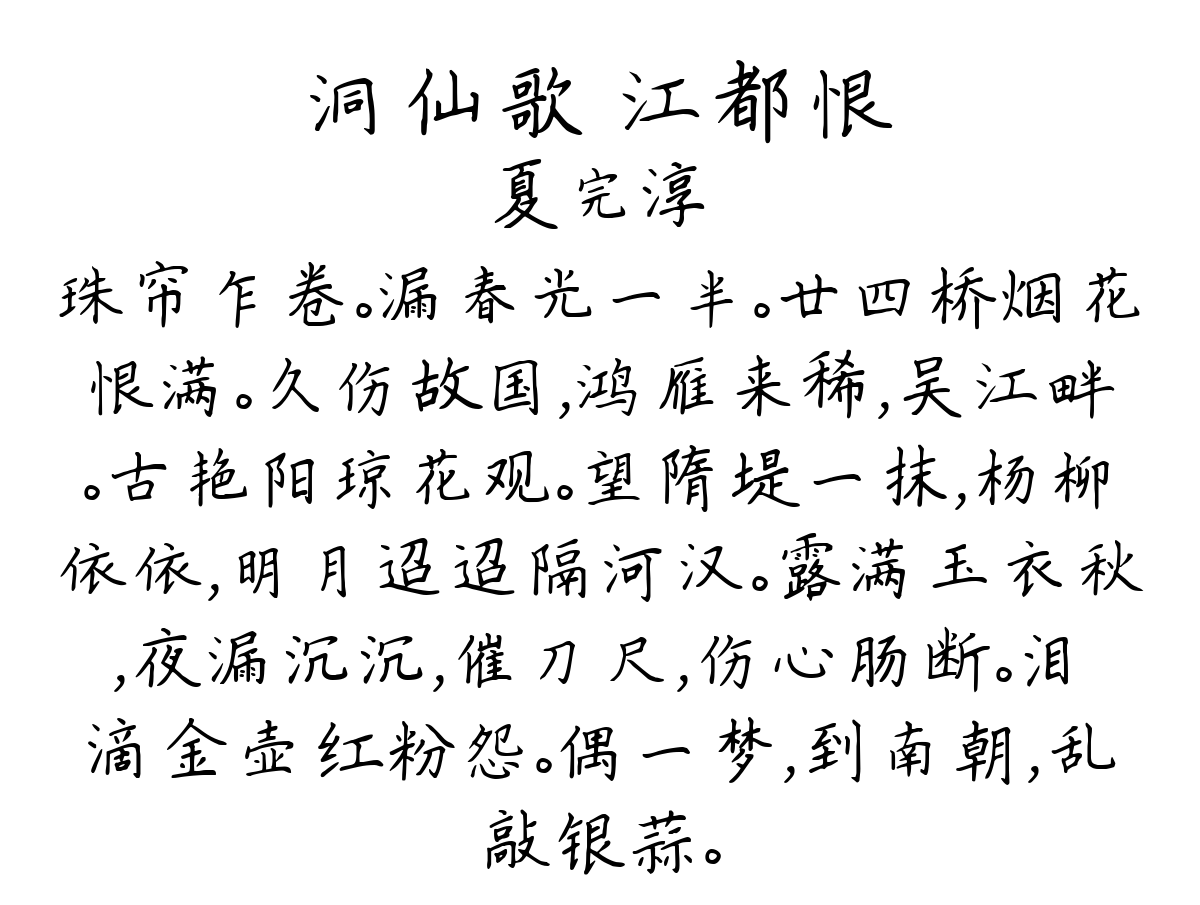 洞仙歌 江都恨
夏完淳
珠帘乍卷。漏春光一半。廿四桥烟花
恨满。久伤故国,鸿雁来稀,吴江畔
。古艳阳琼花观。望隋堤一抹,杨柳
依依,明月迢迢隔河汉。露满玉衣秋
,夜漏沉沉,催刀尺,伤心肠断。泪
滴金壶红粉怨。偶一梦,到南朝,乱
敲银蒜。